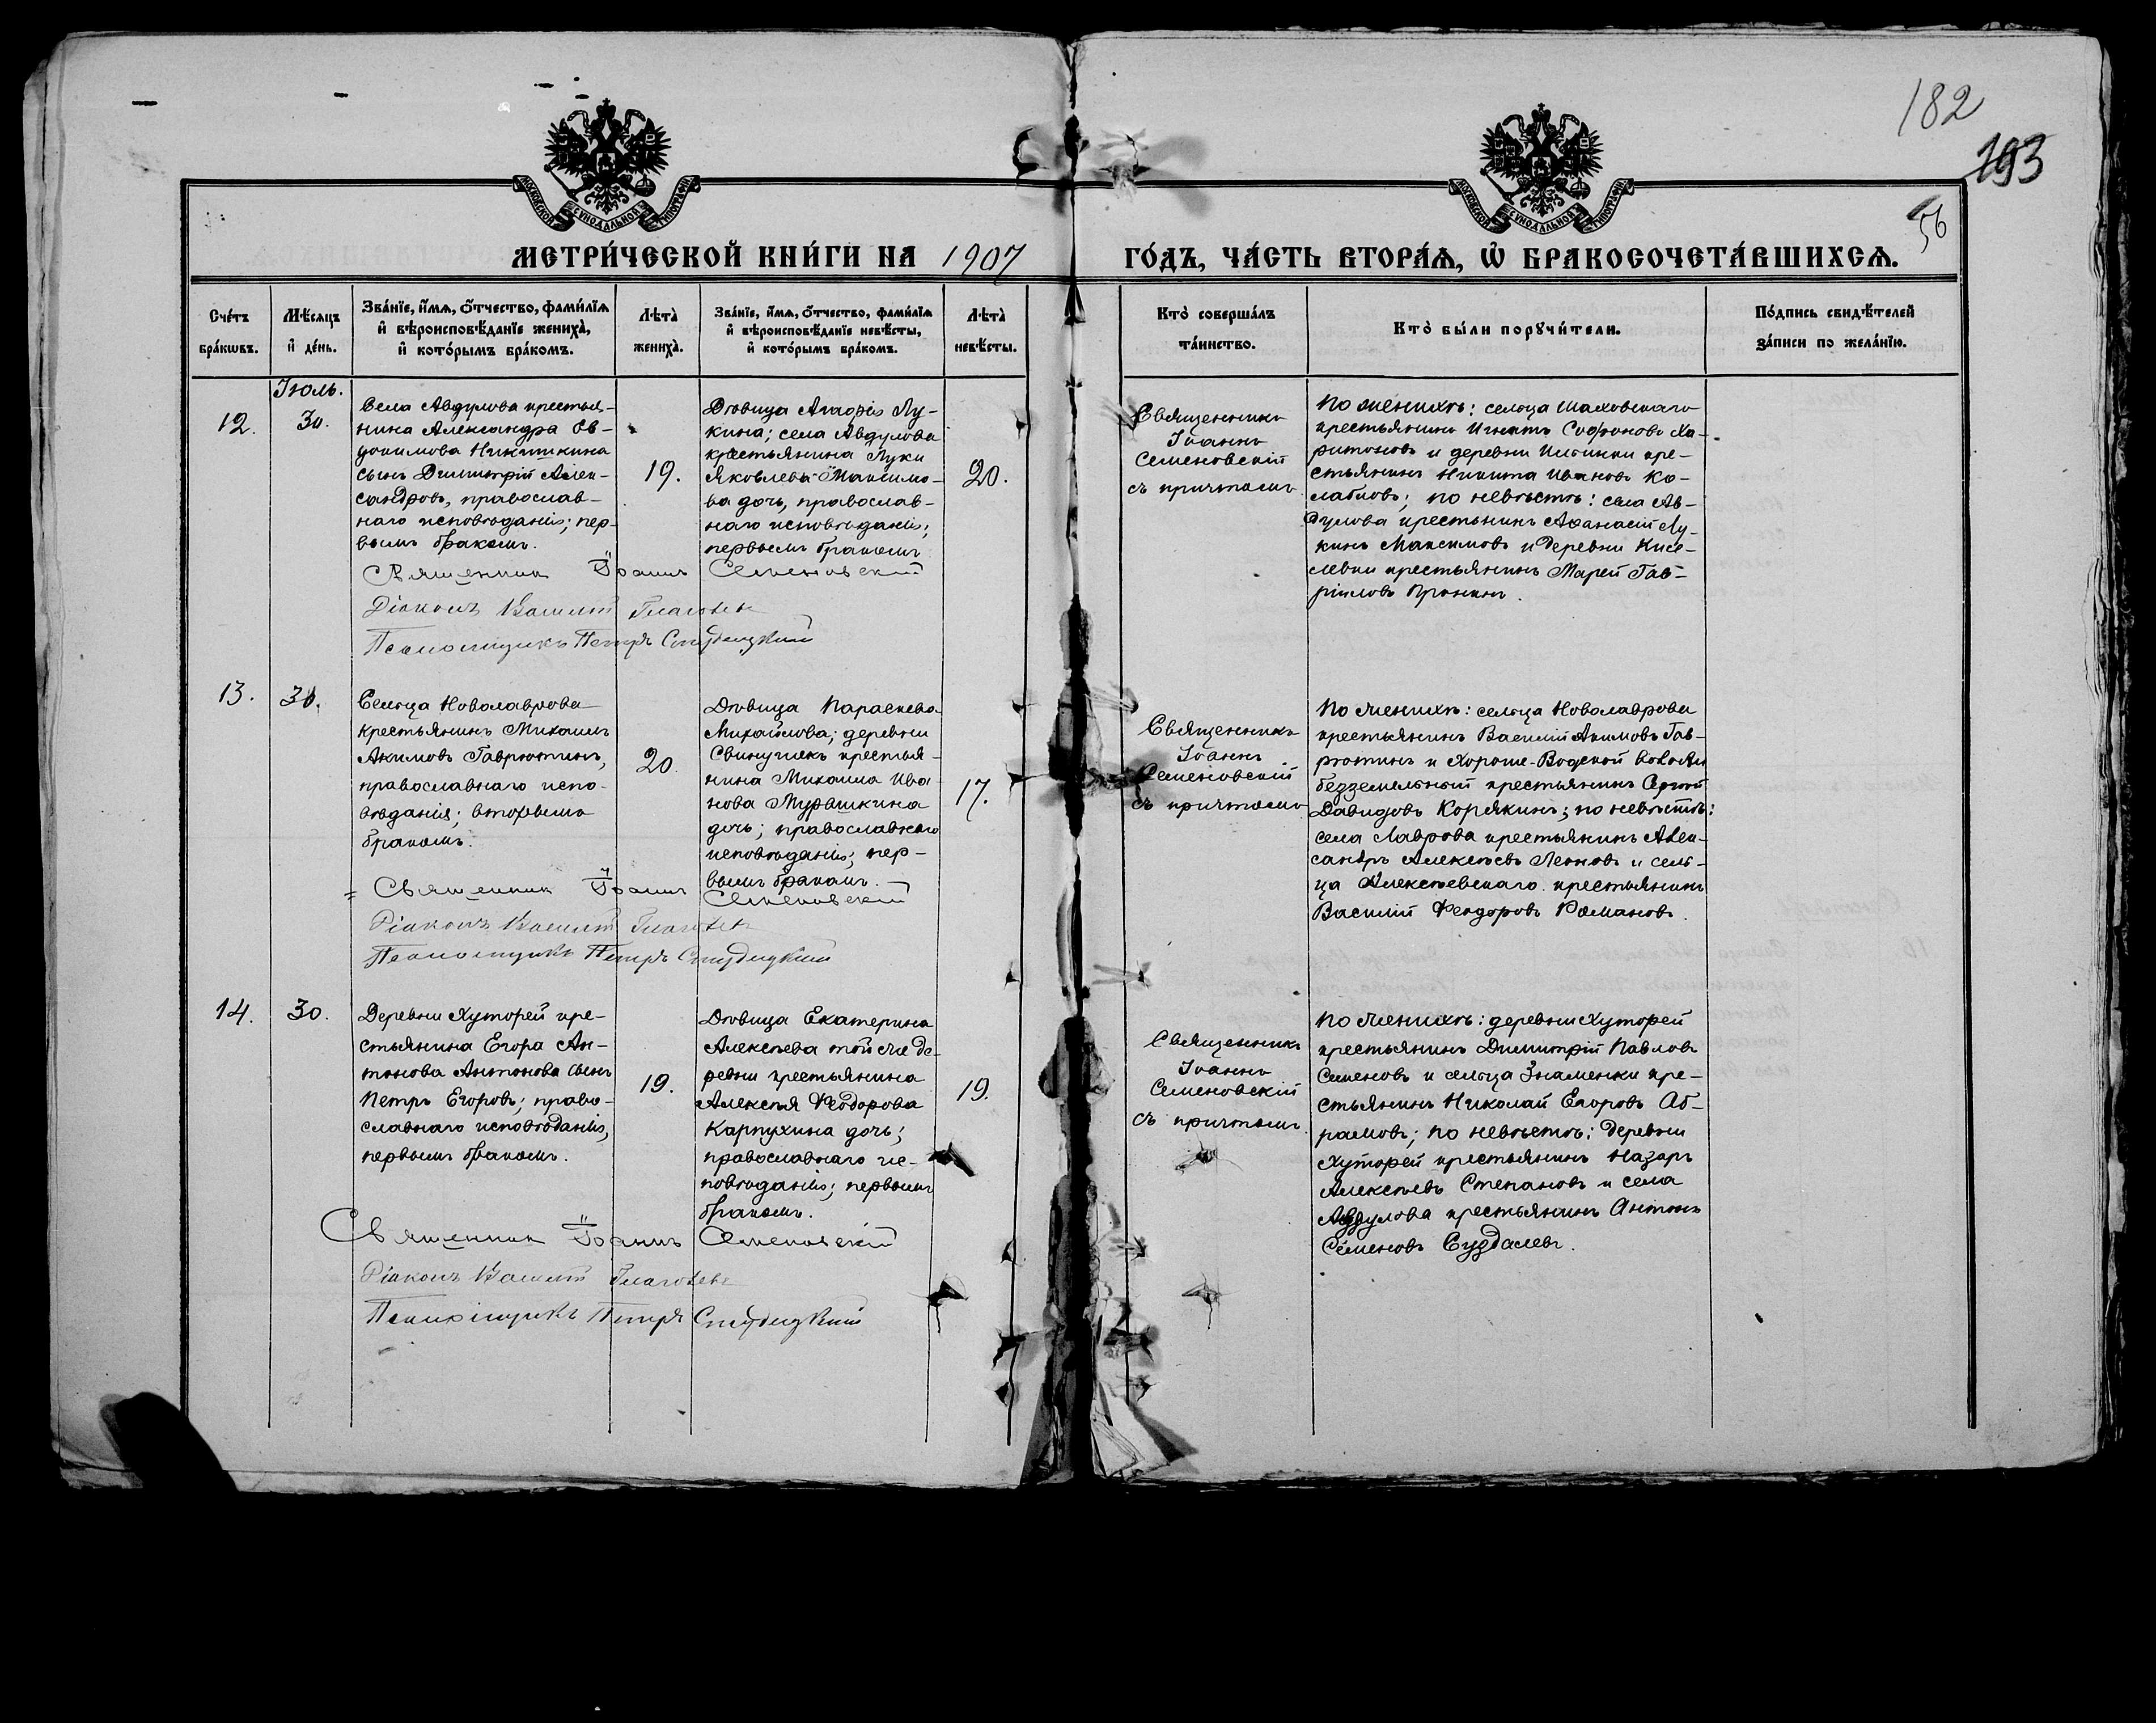 182
193
56
МОСКОВСКОЙ СѴНОДАЛЬНОЙ ТИПОГРАФІИ
МОСКОВСКОЙ СѴНОДАЛЬНОЙ ТИПОГРАФІИ
МЕТРИ́ЧЕСКОЙ КНИ́ГИ НА 1907 ГО́ДЪ, ЧА́СТЬ ВТОРА́Ѧ, Ѡ҆ БРАКОСОЧЕТА́ВШИХСѦ.
Сче́тъ
бра́кѡвъ.
Мѣ́сѧцъ
и҆ де́нь.
Зва́нїе, и҆́мѧ, ѻ҆́тчество, фами́лїѧ
и҆ вѣроисповѣ́данїе женихѐ,
и҆ кото́рымъ бра́комъ.
Лѣ́та
жениха̀.
Зва́нїе, и҆́мѧ, ѻ҆́тчество, фами́лїѧ
и҆ вѣроисповѣ́данїе невѣ́сты,
и҆ кото́рымъ бра́комъ.
Лѣ́та
невѣ́сты.
Кто̀ соверша́лъ
та́инство.
Кто̀ бы́ли порꙋчи́тели.
По́дпись свидѣ́телей
за́писи по жела́нїю.
Іюль.
12.
30.
Села Авдулова крестья-
нина Александра Ев-
докимова Никишкина
сынъ Димитрій Алек-
сандровъ, православ-
наго исповѣданія; пер-
вымъ бракомъ.
19.
Дѣвица Агафія Лу-
кина; села Авдулова
крестьянина Луки
Яковлева Максимо-
ва дочь, православ-
наго исповѣданія;
первымъ бракомъ
20.
Священникъ
Іоаннъ
Семеновскій
съ причтомъ
По женихѣ: сельца Шаховскаго
крестьянинъ Игнатъ Софроновъ Ха-
ритоновъ и деревни Ильинки кре-
стьянинъ Никита Ивановъ Ко-
лабловъ; по невѣстѣ: села Ав-
дулова крестьянинъ Аѳанасій Лу-
кинъ Максимовъ и деревни Кисе-
левки крестьянинъ Марей Гав-
ріиловъ Пронинъ.
Священникъ Іоаннъ Семеновскій
Діаконъ Василій Глаголевъ
Псаломщикъ Петръ Студицкій
13.
30.
Сельца Новолаврова
крестьянинъ Михаилъ
Акимовъ Гаврютинъ,
православнаго испо-
вѣданія; вторымъ
бракомъ.
20.
Дѣвица Параскева
Михайлова; деревни
Свинушекъ крестья-
нина Михаила Ива-
нова Мурашкина
дочь; православнаго
исповѣданія; пер-
вымъ бракомъ.
17.
Священникъ
Іоаннъ
Семеновскій
съ причтомъ
По женихѣ: сельца Новолаврова
крестьянинъ Василій Акимовъ Гав-
рютинъ и Хороше-Водской
безземельный крестьянинъ Сергій
Давидовъ Корякинъ; по невѣстѣ:
села Лаврова крестьянинъ Алек-
сандръ Алексѣевъ Леоновъ и сель-
ца Алексѣевскаго крестьянинъ
Василій Ѳеодоровъ Романовъ.
Священникъ Іоаннъ Семеновскій
Діаконъ Василій Глаголевъ
Псаломщикъ Петръ Студицкій
14.
30.
Деревни Хуторей кре-
стьянина Егора Ан-
тонова Антонова сынъ
Петръ Егоровъ; право-
славнаго исповѣданія,
первымъ бракомъ.
19.
Дѣвица Екатерина
Алексѣева той же де-
ревни крестьянина
Алексѣя Ѳеодорова
Карпухина дочь;
православнаго ис-
повѣданія; первымъ
бракомъ.
19.
Священникъ
Іоаннъ
Семеновскій
съ причтомъ
По женихѣ: деревни Хуторей
крестьянинъ Димитрій Павловъ
Семеновъ и сельца Знаменки кре-
стьянинъ Николай Егоровъ Аб-
рамовъ; по невѣстѣ: деревни
Хуторей крестьянинъ Назаръ
Алексѣевъ Степановъ и села
Авдулова крестьянинъ Антонъ
Семеновъ Суздалевъ.
Священникъ Іоаннъ Семеновскій
Діаконъ Василій Глаголевъ
Псаломщикъ Петръ Студицкій